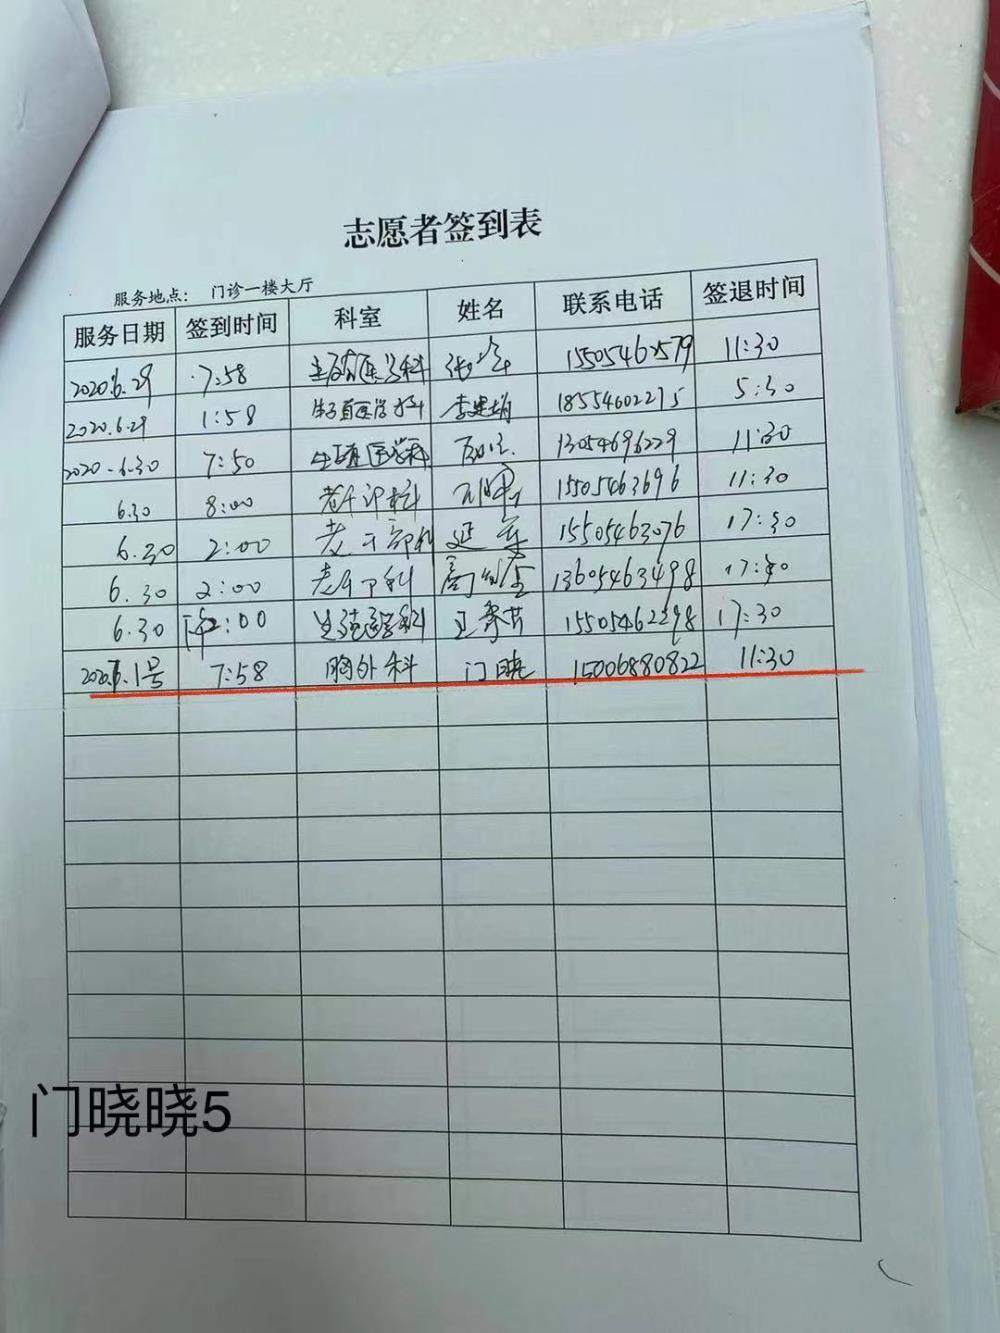 志愿者签到表
服务地点： 门诊一楼大厅
服务日期 签到时间 科室 姓名 联系电话 签退时间
2020.6.29 7:58 生殖医学科 15505462579 11:30
2020.6.29 1:58 生殖医学科 18554602275 5:30
2020.6.30 7:50 生殖医学科 13054696229 11:30
6.30 8:00 老干部科 15505463696 11:30
6.30 2:00 老干部科 15505463076 17:30
6.30 2:00 老干部科 13605463498 17:30
6.30 2:00 生殖医学科 15505462298 17:30
1号 7:58 胸外科 门晓 15006880822 11:30
门晓晓5